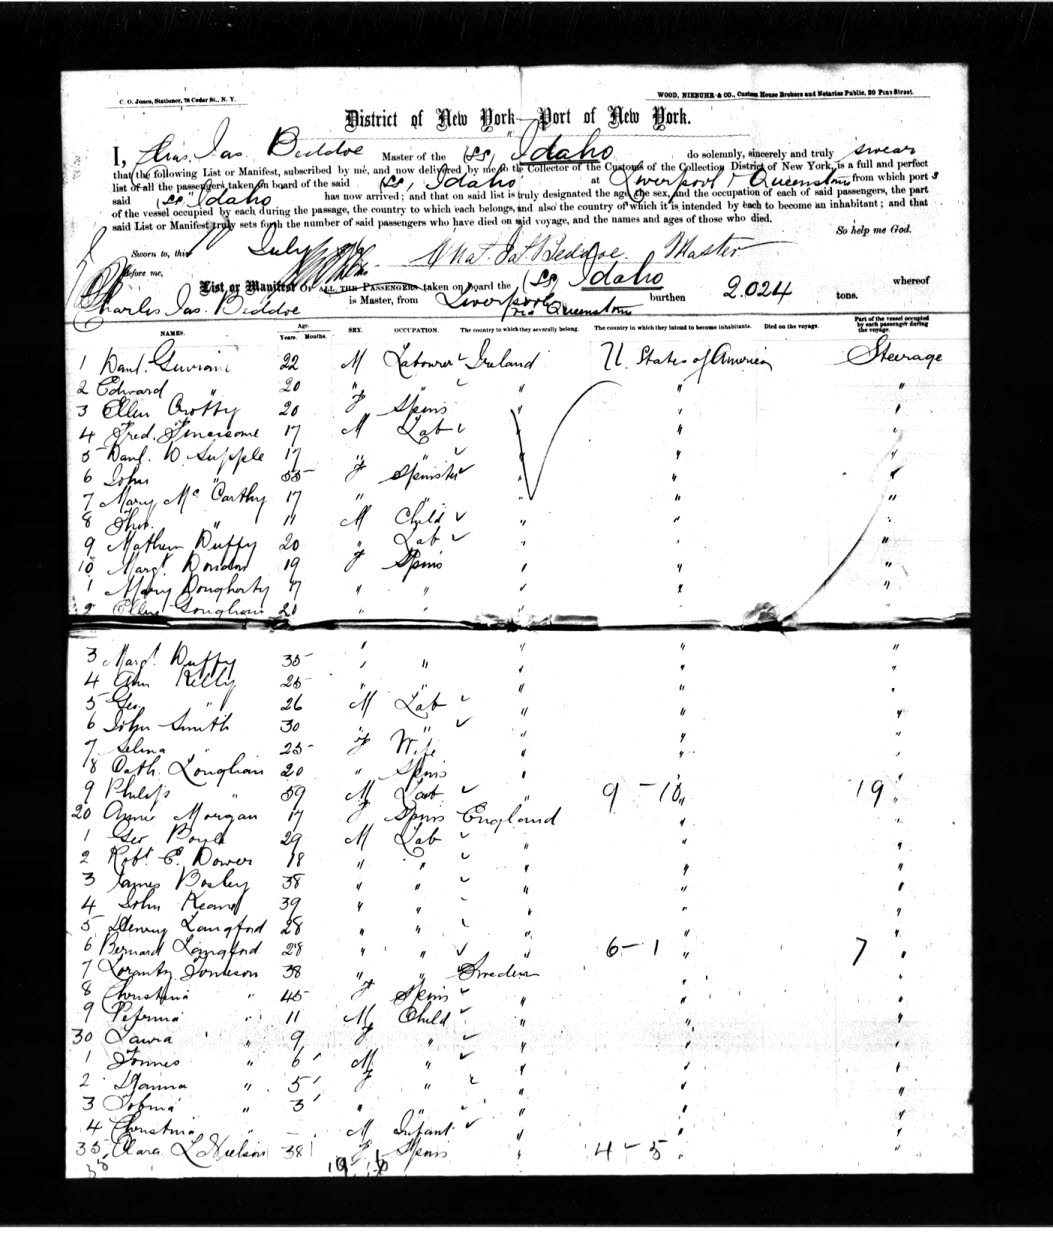 C. O. Jones, Stationer, 76 Cedar St., N. Y.
WOOD, NIEBUHR & CO., Custom House Brokers and Notaries Public, 20 Pine Street.
District of New York—Port of New York.
I, Chas. Jas. Beddoe Master of the (SS) Idaho do solemnly, sincerely and truly swear
that the following List or Manifest, subscribed by me, and now delivered by me to the Collector of the Customs of the Collection District of New York, is a full and perfect
list of all the passengers taken on board of the said (SS) Idaho at Liverpool & Queenstown from which port s
said (SS) Idaho has now arrived; and that on said list is truly designated the age, the sex, and the occupation of each of said passengers, the part
of the vessel occupied by each during the passage, the country to which each belongs, and also the country of which it is intended by each to become an inhabitant; and that
said List or Manifest truly sets forth the number of said passengers who have died on said voyage, and the names and ages of those who died.
So help me God.
Sworn to, this July
Before me,
Chas. Jas. Beddoe. Master
List or Manifest OF ALL THE PASSENGERS taken on board the (SS) Idaho whereof
Charles Jas. Beddoe is Master, from Liverpool via Queenstown burthen 2.024 tons.
NAMES. Age. Years. Months. SEX. OCCUPATION. The country to which they severally belong. The country in which they intend to become inhabitants. Died on the voyage. Part of the vessel occupied by each passenger during the voyage.
1 Danl. 22 M Labourer Ireland U. States of America Steerage
2 Edward " 20 " " " " "
3 Ellen Crotty 20 F Spins " " "
4 Fred. 17 M Lab " " "
5 Danl. W. Supple 17 " " " " "
6 John " 55 F Spinster " " "
7 Mary McCarthy 17 " " " "
8 Thos. " 11 M Child " " "
9 Mathew Duffy 20 " Lab " " "
10 Margt. 19 F Spins " " "
1 Mary Dougherty 17 " " " " "
2 Ellen Longhan 20 " " " " "
3 Margt. Duffy 35 " " " " "
4 Ann Kelly 25 " " " " "
5 Geo. " 26 M Lab " " "
6 John Smith 30 " " " " "
7 Selina " 25 F Wife " " "
8 Cath. Longhan 20 " Spins " " "
9 Philip " 59 M Lab " 9 - 10 " 19
20 Annie Morgan 17 F Spins England " "
1 Geo. Boyle 29 M Lab " " "
2 Robt. E. Dower 18 " " " " "
3 James Bosley 38 " " " " "
4 John Keane 39 " " " " "
5 Henry Langford 28 " " " " "
6 Bernard Langford 28 " " " 6 - 1 " 7
7 38 " " Sweden " "
8 Christina " 45 F Spins " " "
9 " 11 M Child " " "
30 Laura " 9 F " " " "
1 " 6 M " " " "
2 Hanna " 5 F " " " "
3 " 3 " " " "
4 Christina " - M Infant " " "
35 Clara L Nielson 38 F Spins " 4 - 5 "